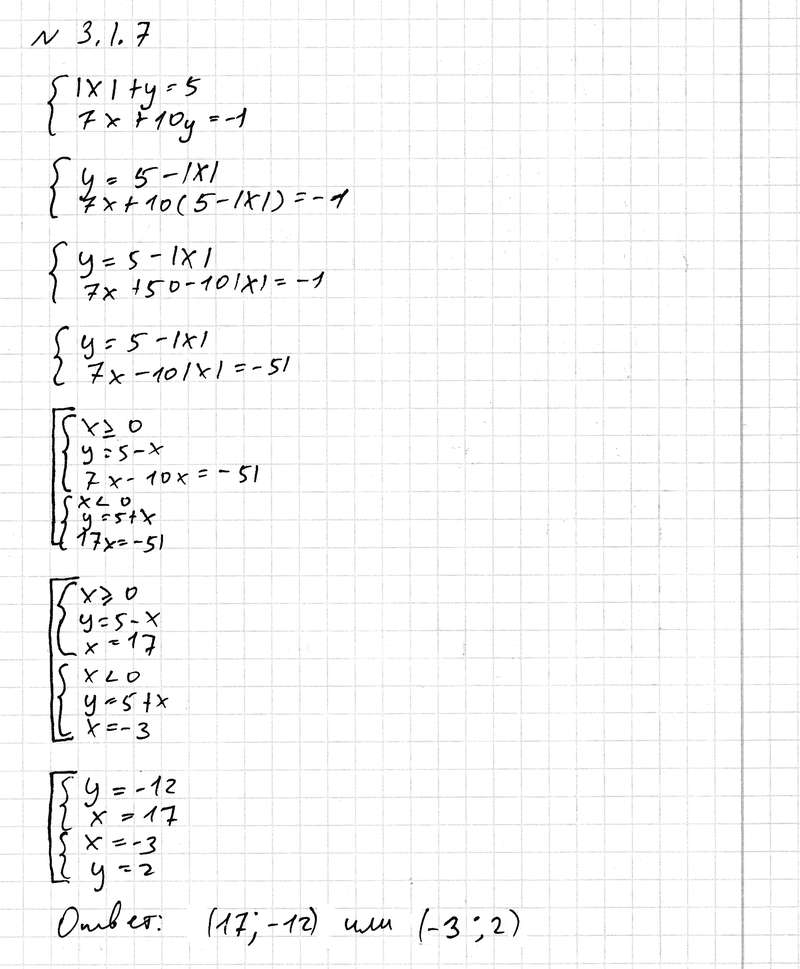 N 3.1.7
|x| + y = 5
7x + 10y = -1
y = 5 - |x|
7x + 10(5 - |x|) = -1
y = 5 - |x|
7x + 50 - 10|x| = -1
y = 5 - |x|
7x - 10|x| = -51
x ≥ 0
y = 5 - x
7x - 10x = -51
x < 0
y = 5 + x
17x = -51
x ≥ 0
y = 5 - x
x = 17
x < 0
y = 5 + x
x = -3
y = -12
x = 17
x = -3
y = 2
Ответ: (17; -12) или (-3; 2)